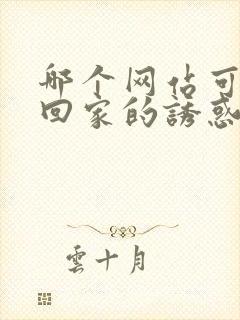 哪个网站可
回家的誘惑
雲十月